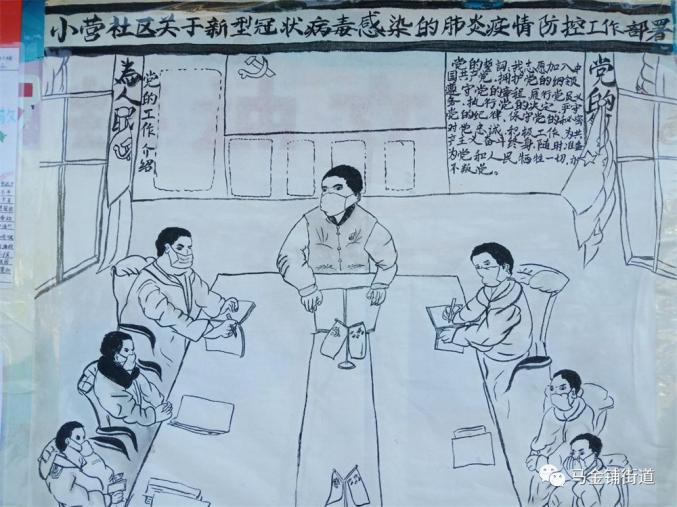 小营社区关于新型冠状病毒感染的肺炎疫情防控工作部署
为人民
党的工作介绍
党的誓词:我志愿加入中
国共产党,拥护党的纲领
遵守党的章程,履行党员义
务,执行党的决定,严守
党的纪律,保守党的秘密
对党忠诚,积极工作,为共
产主义奋斗终身,随时准备
为党和人民牺牲一切,永
不叛党。
党的
马金铺街道